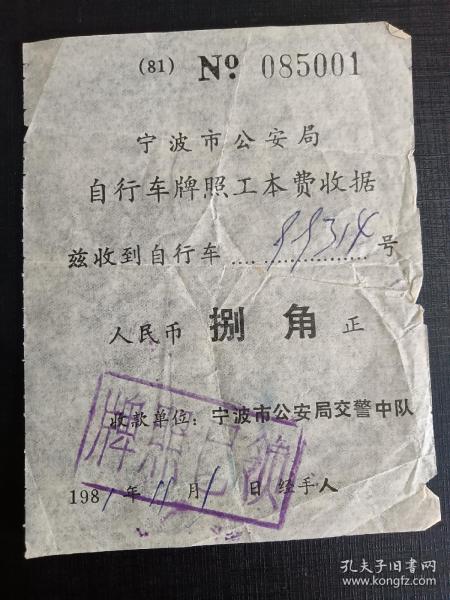 (81) № 085001
宁波市公安局
自行车牌照工本费收据
兹收到自行车......99314号
人民币 捌角正
收款单位：宁波市公安局交警中队
牌照已领
1981年11月1日 经手人
孔夫子旧书网
www.kongfz.com